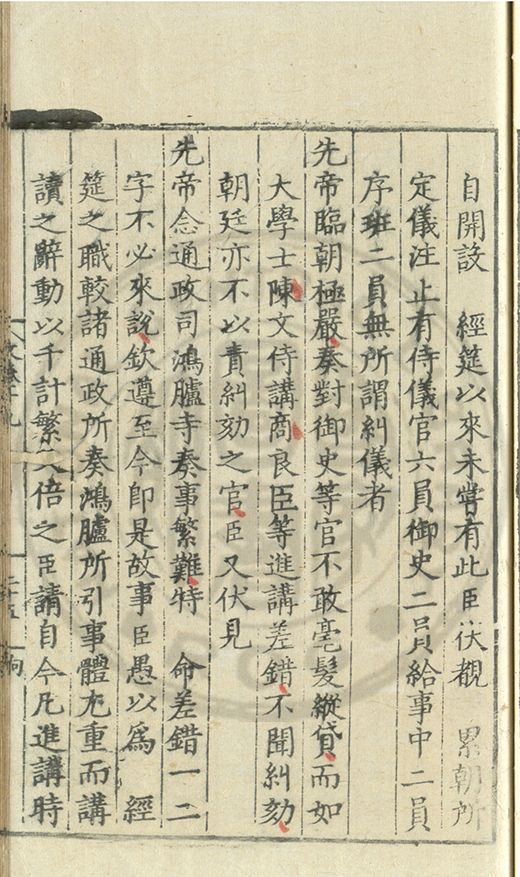 自開設　經筵以來未嘗有此臣伏覩　累朝所
定儀注止有侍儀官六員御史二員給事中二員
序班二員無所謂糾儀者
先帝臨朝極嚴奏對御史等官不敢毫髮縱貸而如
大學士陳文侍講商良臣等進講差錯不聞糾劾
朝廷亦不以責糾劾之官臣又伏見
先帝念通政司鴻臚寺奏事繁難特　命差錯一二
字不必來說欽遵至今卽是故事臣愚以爲　經
筵之職較諸通政所奏鴻臚所引事體尤重而講
讀之辭動以千計繁六倍之臣請自今凡進講時
二十五